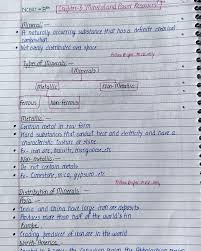 NCERT - 8th [Chapter-3 Mineral and Power Resources]
Mineral:-
• A naturally occurring substance that has a definite chemical
composition
• Not evenly distributed over space
Types of Minerals:-
(Minerals)
Metallic Non-Metallic
Ferrous Non-Ferrous
Metallic:-
• Contain metal in raw form
• Hard substances that conduct heat and electricity and have a
characteristic lustre or shine
• Ex- iron ore, bauxite, manganese etc
Non-metallic:-
• Do not contain metals
• Ex- Limestone, mica, gypsum etc
Distribution of Minerals:-
Asia
• India and China have large iron ore deposits
• Produces more than half of the world's tin
Europe
• Leading producer of iron ore in the world
North America